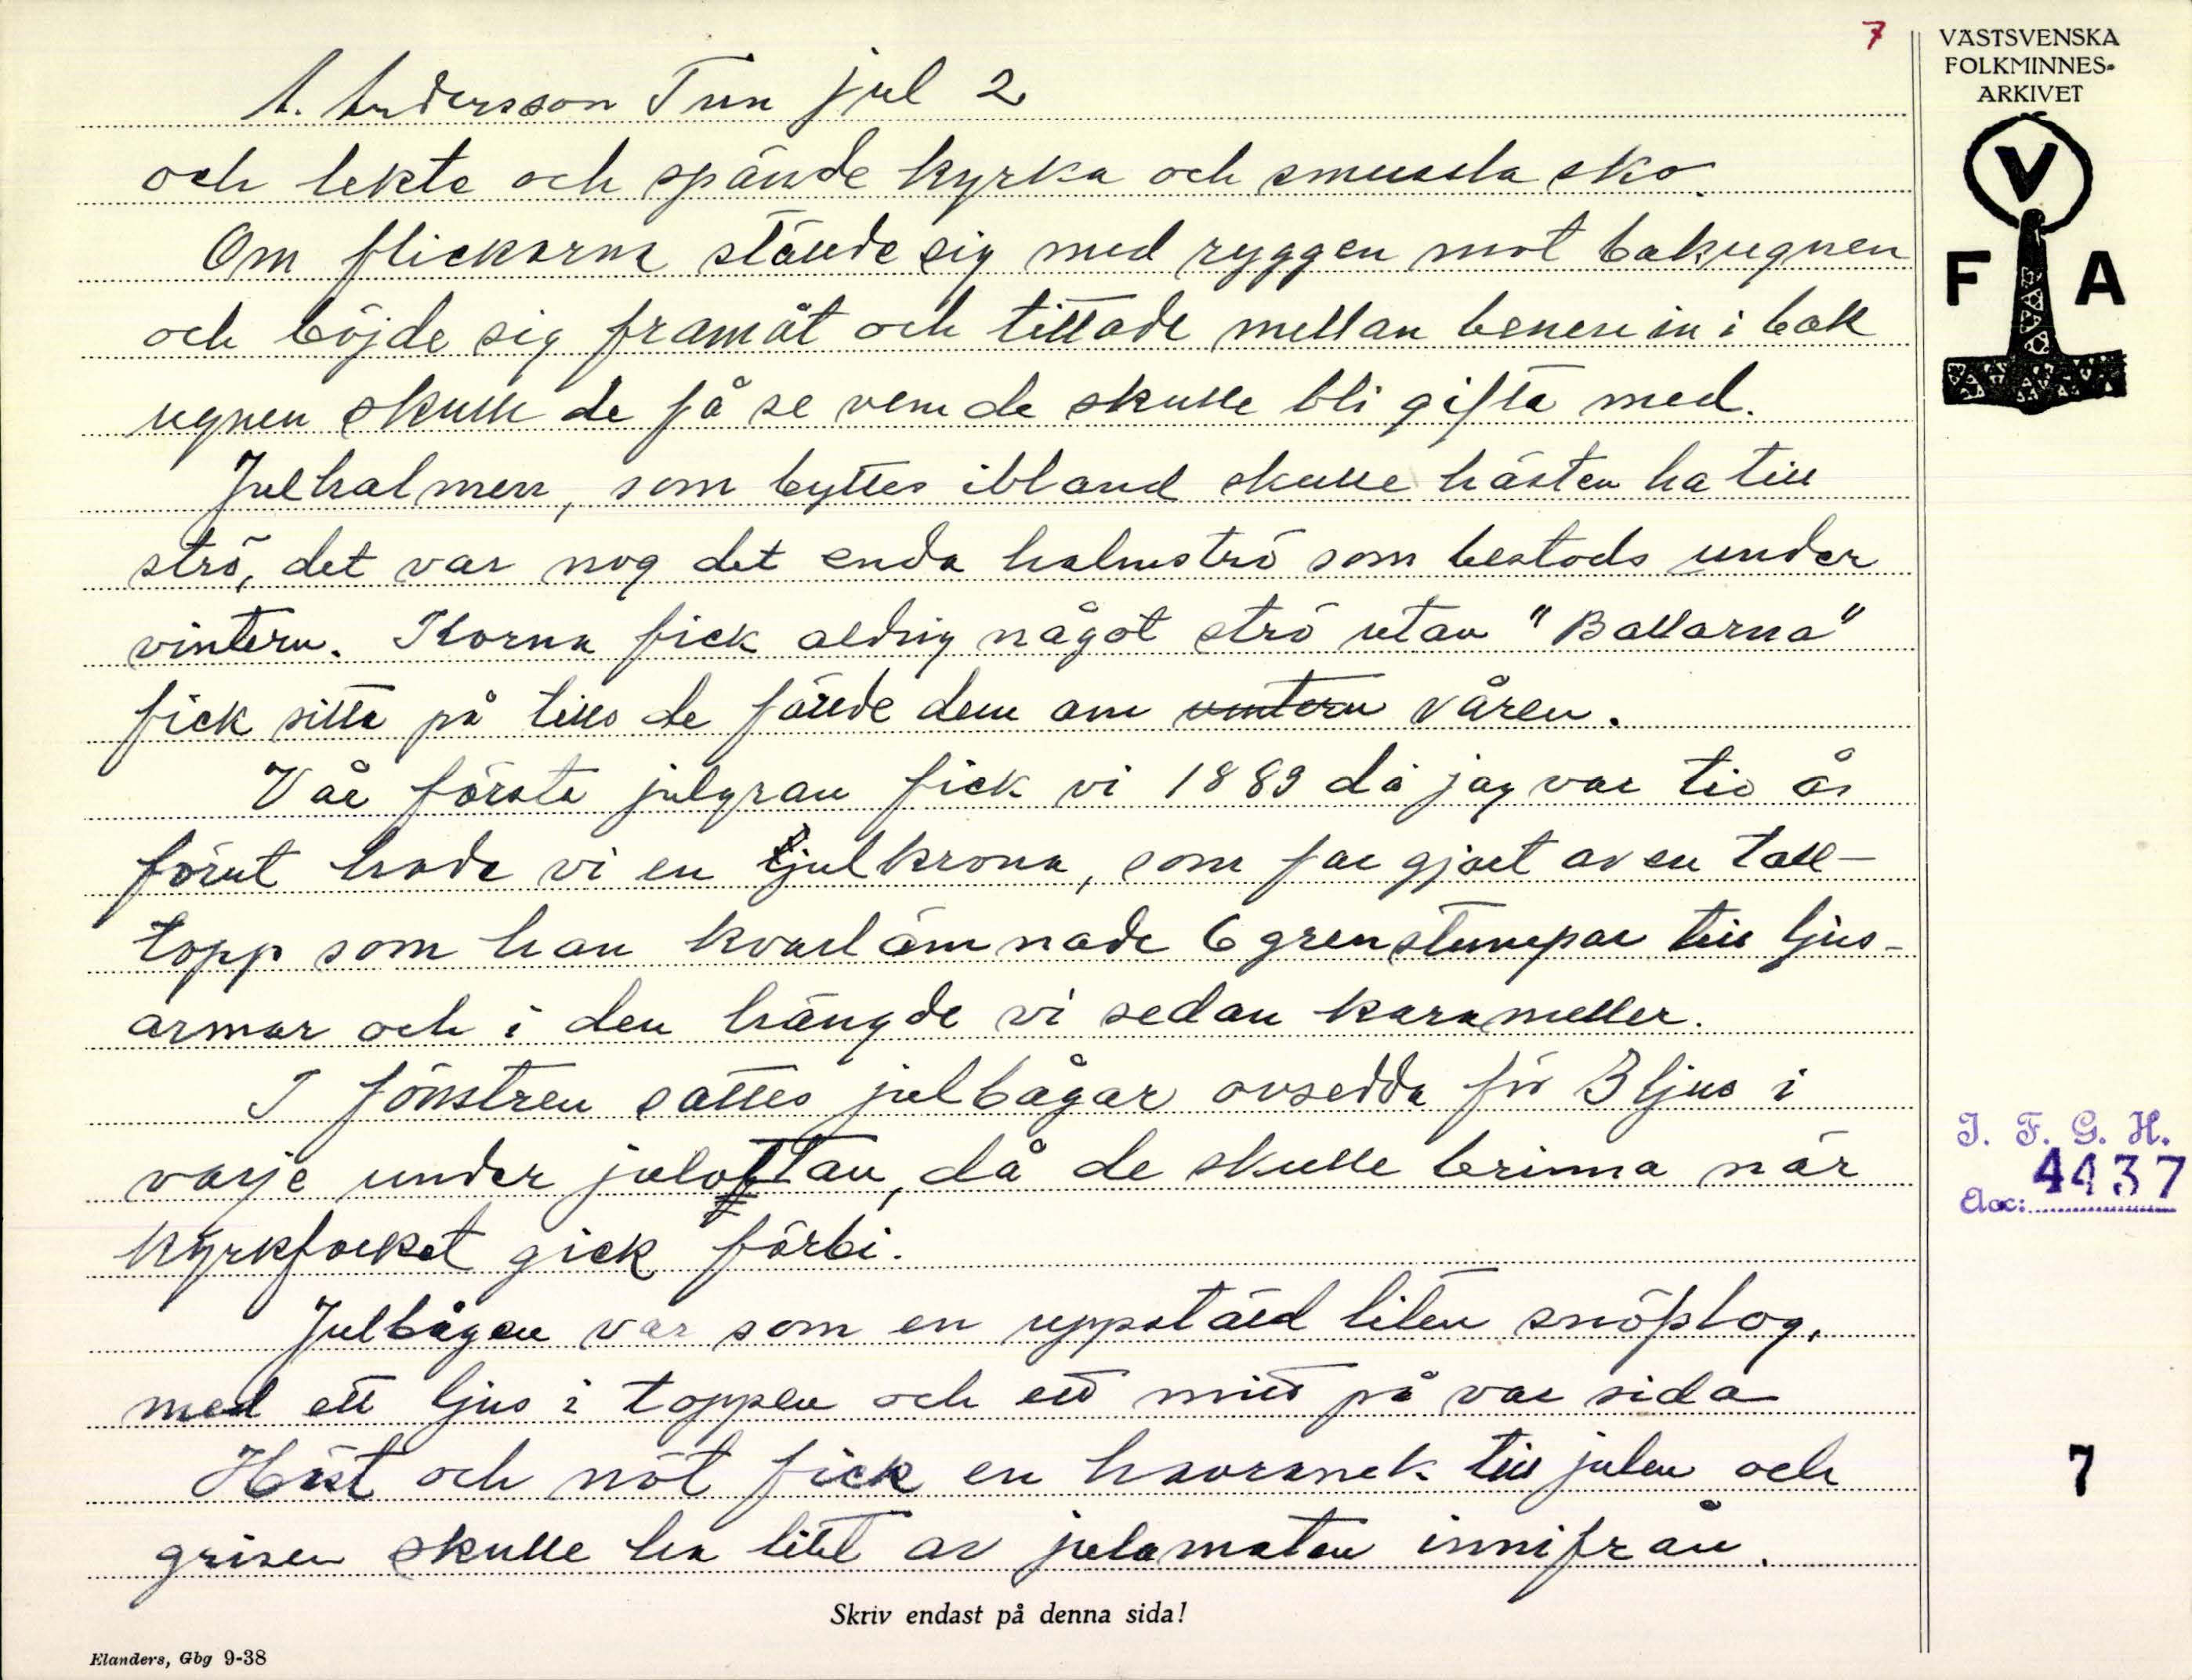 7
VÄSTSVENSKA
FOLKMINNES-
ARKIVET
V
F A
A. Andersson Tun jul 2
och lekte och spände kyrka och smussla sko.
Om flickorna ställde sig med ryggen mot bakugnen
och böjde sig framåt och tittade mellan benen in i bak
ugnen skulle de få se vem de skulle bli gifta med.
Julhalmen, som byttes ibland skulle hästen ha till
strö, det var nog det enda halmströ som bestods under
vintern. Korna fick aldrig något strö utan "Ballarna"
fick sitta på tills de fällde dem om vintern våren.
Vår första julgran fick vi 1889 då jag var tio år
förut hade vi en julkrona, som far gjort av en tall-
topp som han kvarlämnade 6 grenstumpar till ljus-
armar och i den hängde vi sedan karameller.
I fönstren sattes julbågar avsedda för 3 ljus i
varje under julottan, då de skulle brinna när
kyrkfolket gick förbi.
Julbågen var som en uppställd liten snöplog,
med ett ljus i toppen och ett mitt på var sida
Häst och nöt fick en havrenek till julen och
grisen skulle ha litet av julamaten innifrån.
I. F. G. H.
Acc: 4437
7
Skriv endast på denna sida!
Elanders, Gbg 9-38